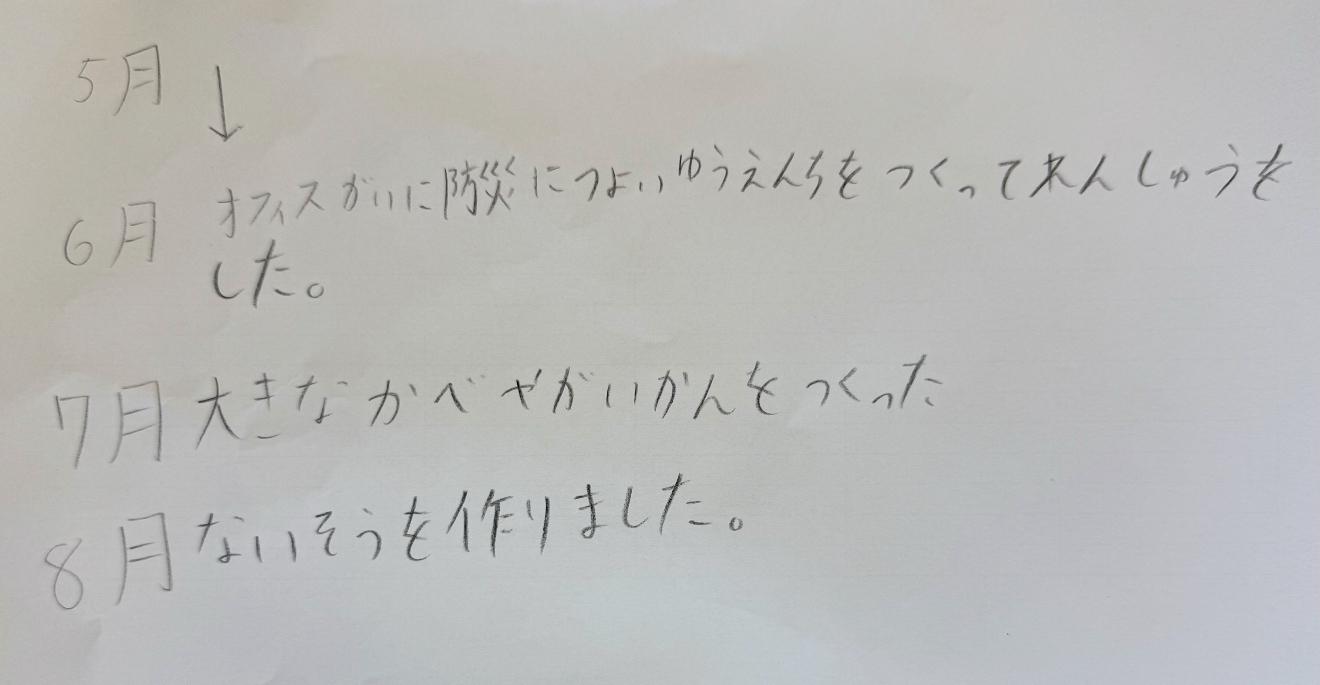 5月 ↓
6月 オフィスがいに防災につよいゆうえんちをつくってれんしゅうを
した。
7月 大きなかべやがいかんをつくった
8月 ないそうを作りました。